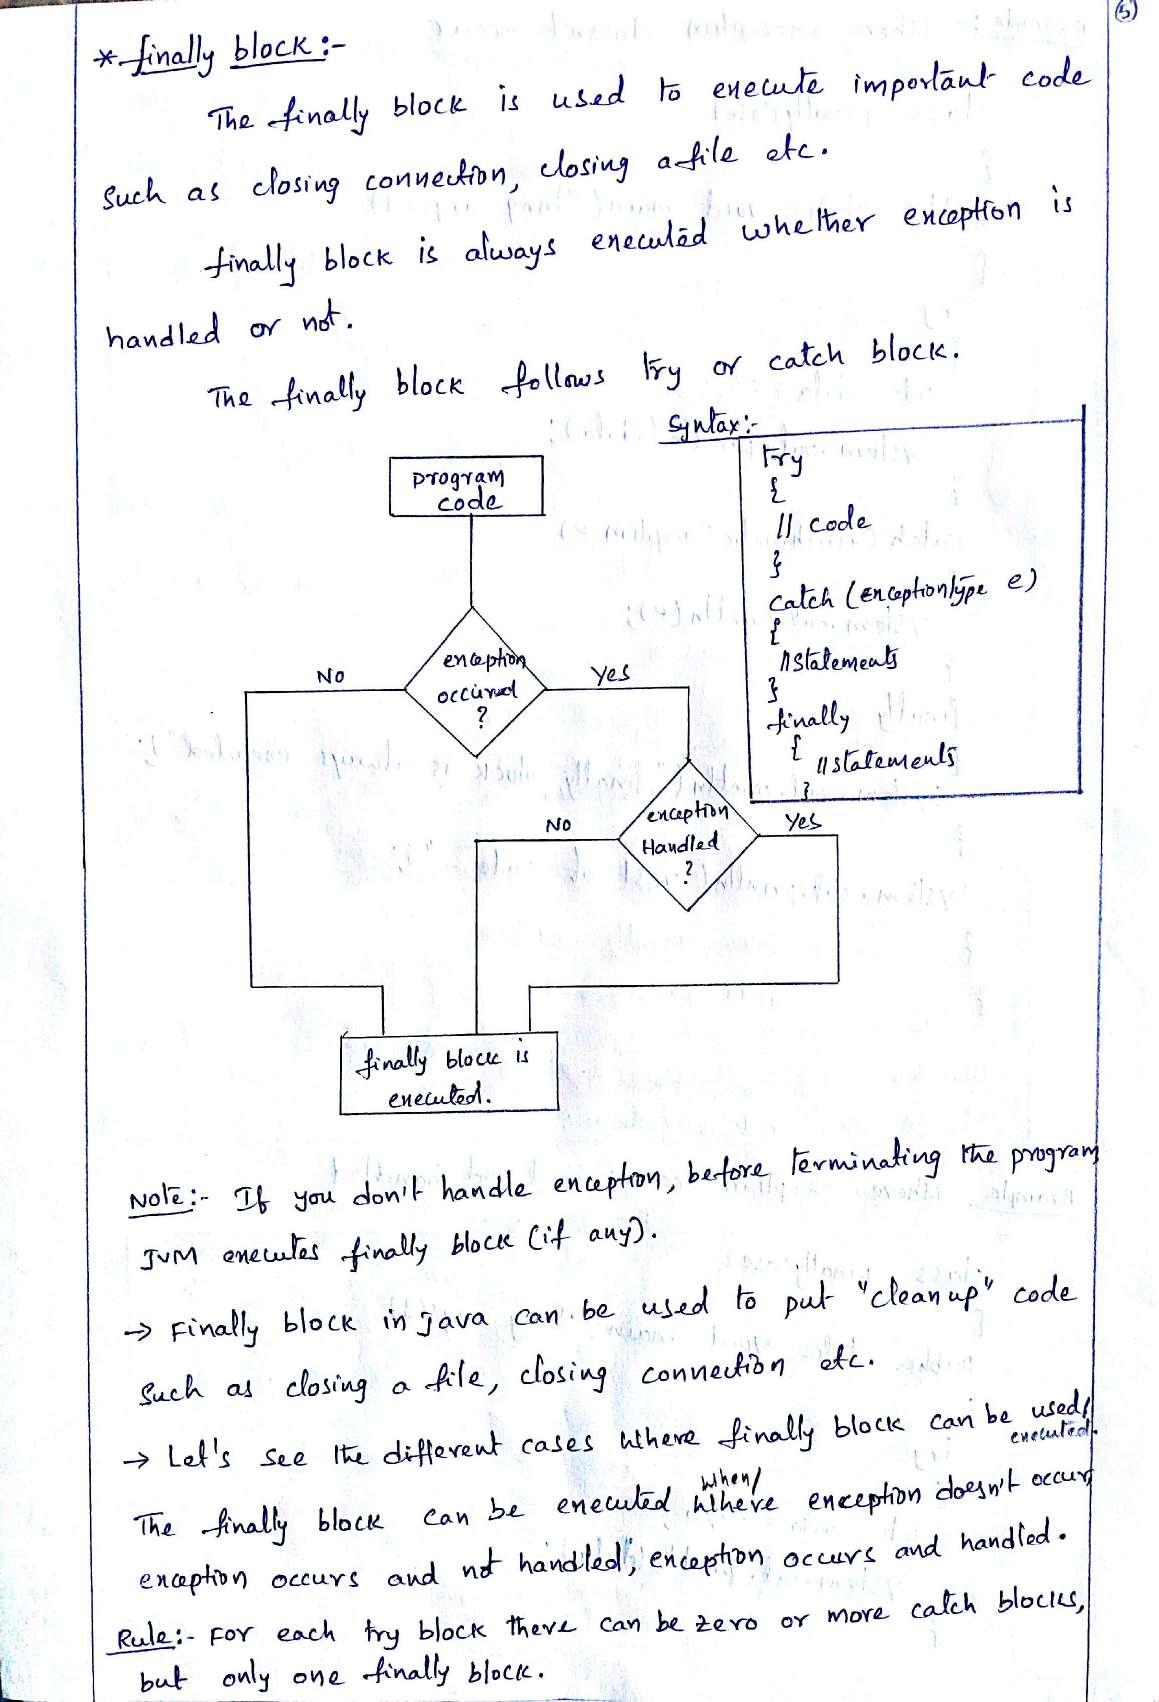 (5)
* finally block :-
The finally block is used to execute important code
such as closing connection, closing a file etc.
finally block is always executed whether exception is
handled or not.
The finally block follows try or catch block.
Syntax :-
try
{
// code
}
catch (Exceptiontype e)
{
//statements
}
finally
{
//statements
}
program
code
exception
occurred
?
No
Yes
exception
Handled
?
No
Yes
finally block is
executed.
Note :- If you don't handle exception, before terminating the program
JVM executes finally block (if any).
→ Finally block in java can be used to put "clean up" code
such as closing a file, closing connection etc.
→ Let's see the different cases where finally block can be used/
executed.
The finally block can be executed when/where exception doesn't occur,
exception occurs and not handled, exception occurs and handled.
Rule :- For each try block there can be zero or more catch blocks,
but only one finally block.